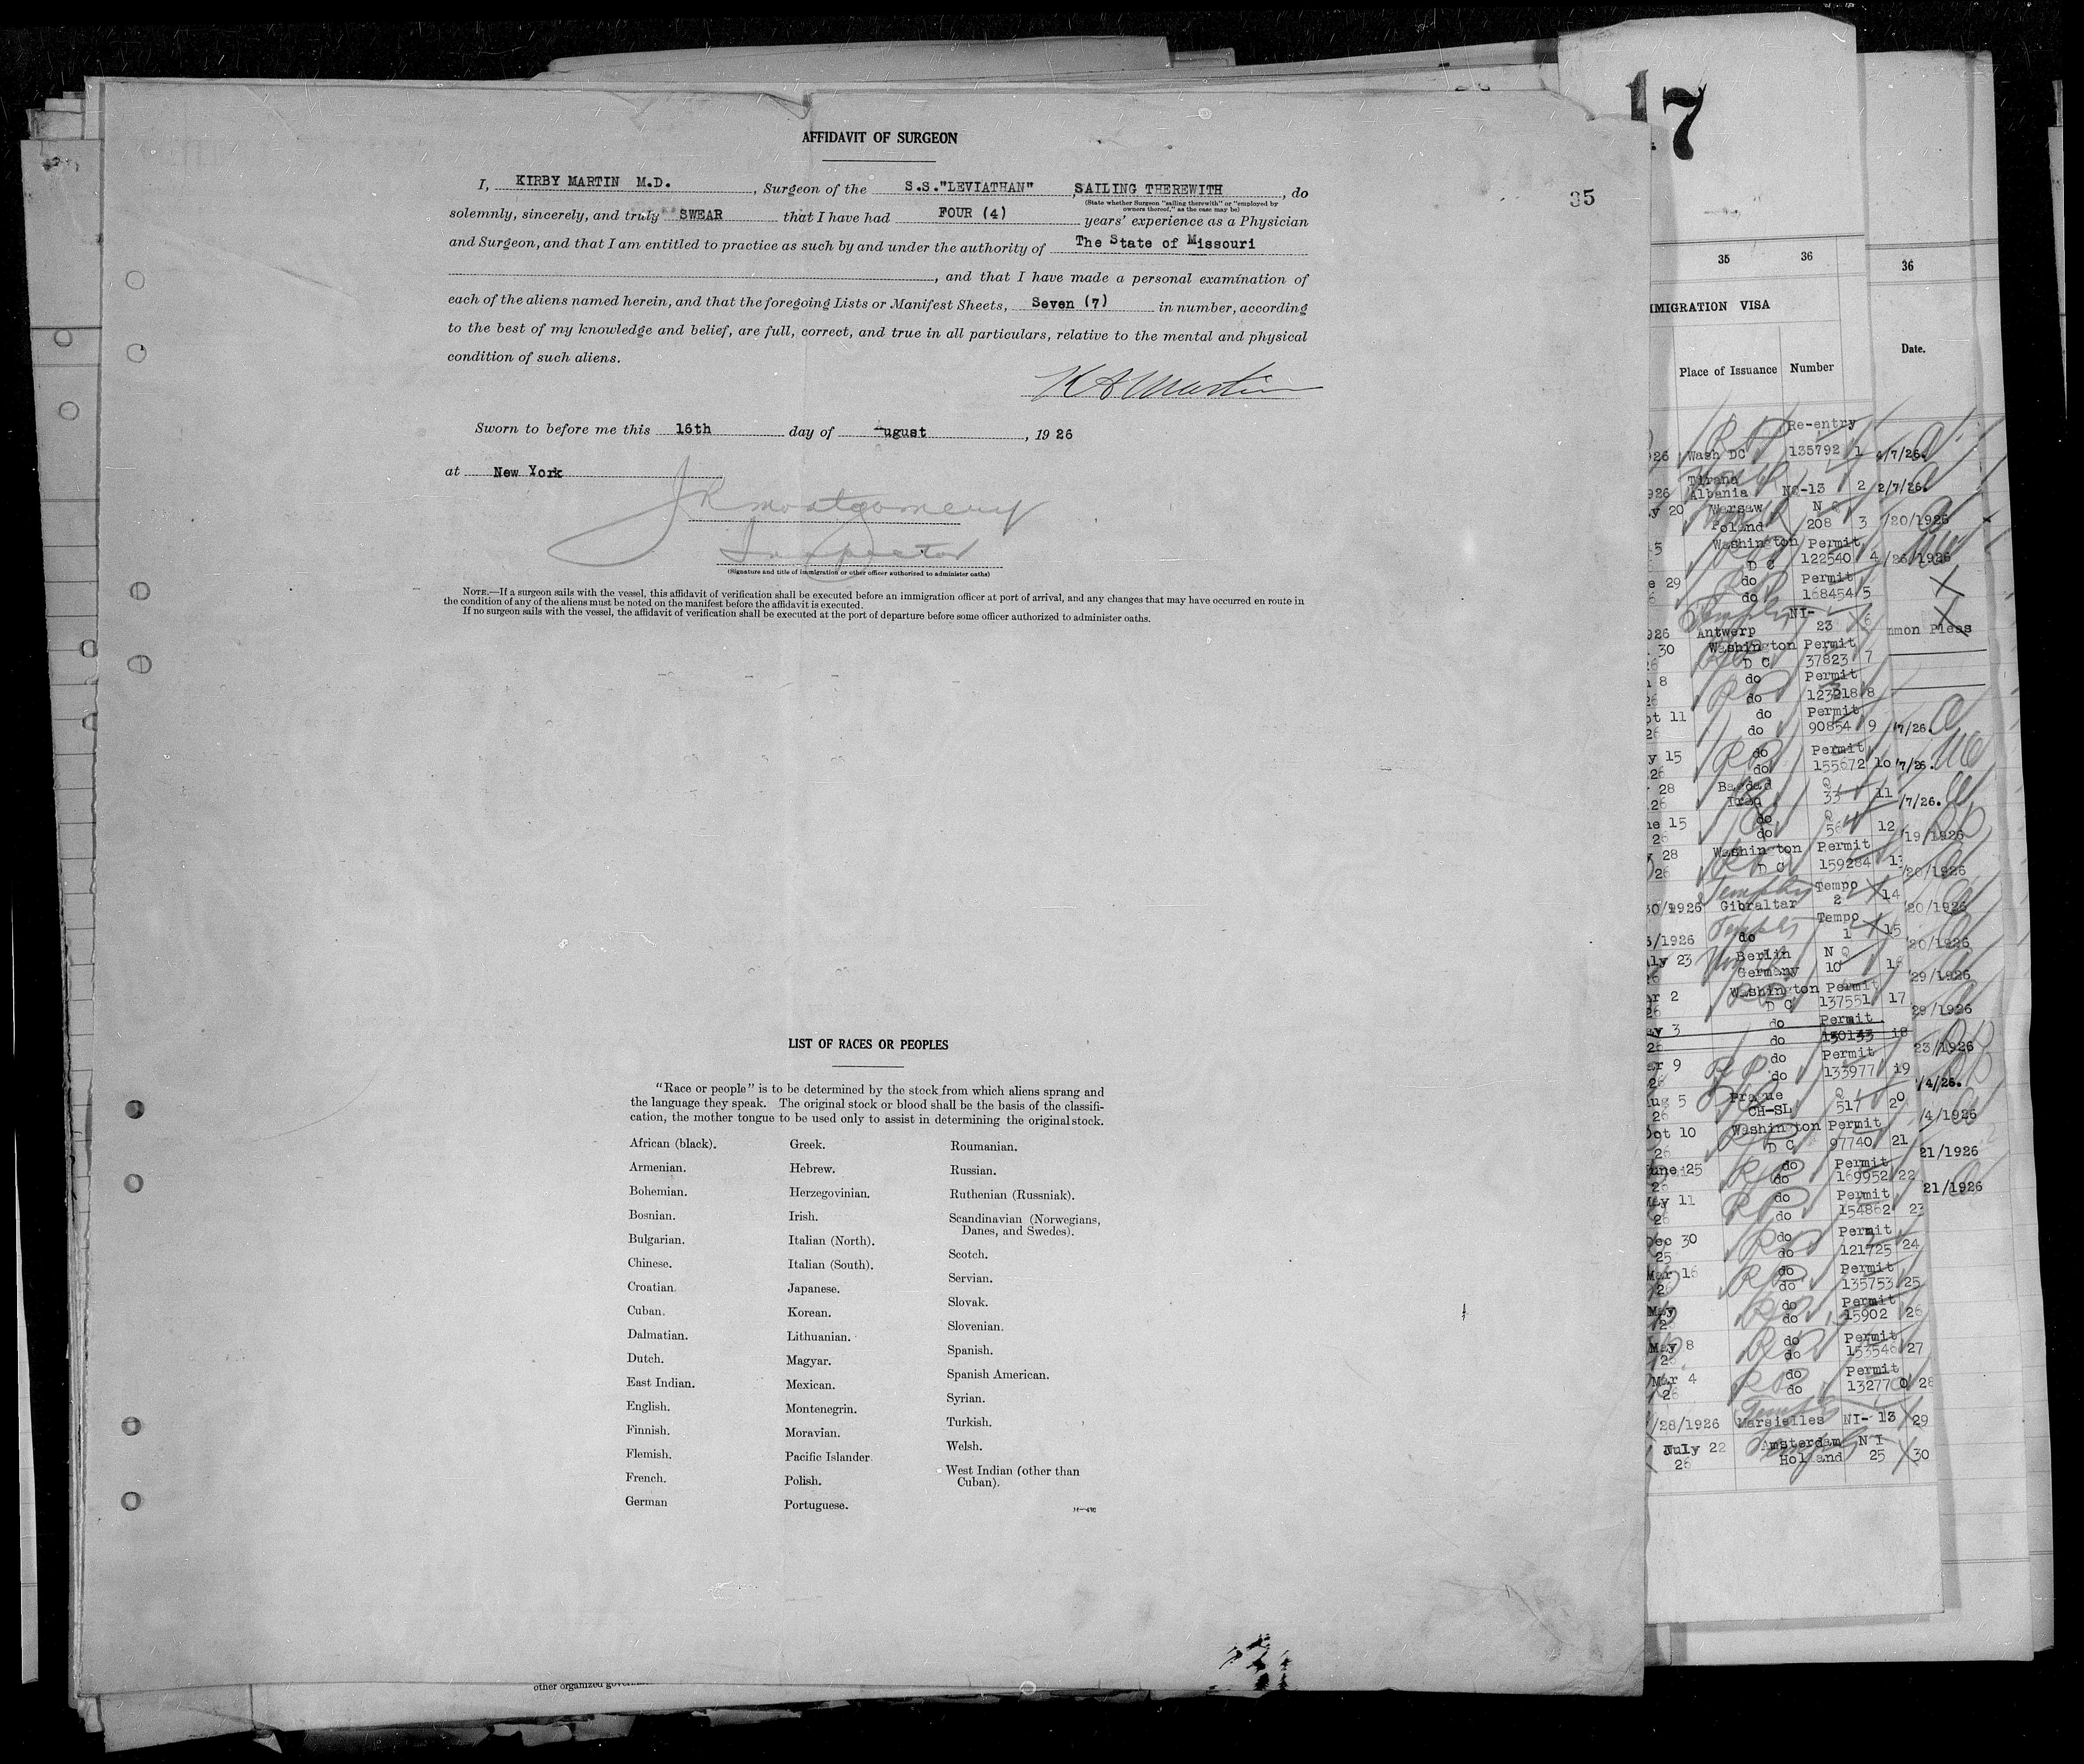 AFFIDAVIT OF SURGEON
I, KIRBY MARTIN M.D. , Surgeon of the S.S."LEVIATHAN" , SAILING THEREWITH , do
(State whether Surgeon "sailing therewith" or "employed by
owners thereof," as the case may be)
35
solemnly, sincerely, and truly SWEAR that I have had FOUR (4) years' experience as a Physician
and Surgeon, and that I am entitled to practice as such by and under the authority of The State of Missouri
, and that I have made a personal examination of
each of the aliens named herein, and that the foregoing Lists or Manifest Sheets, Seven (7) in number, according
to the best of my knowledge and belief, are full, correct, and true in all particulars, relative to the mental and physical
condition of such aliens.
K A Martin
Sworn to before me this 16th day of August , 19 26
at New York
J R Montgomery
Inspector
(Signature and title of immigration or other officer authorized to administer oaths)
NOTE.—If a surgeon sails with the vessel, this affidavit of verification shall be executed before an immigration officer at port of arrival, and any changes that may have occurred en route in
the condition of any of the aliens must be noted on the manifest before the affidavit is executed.
If no surgeon sails with the vessel, the affidavit of verification shall be executed at the port of departure before some officer authorized to administer oaths.
LIST OF RACES OR PEOPLES
"Race or people" is to be determined by the stock from which aliens sprang and
the language they speak. The original stock or blood shall be the basis of the classifi-
cation, the mother tongue to be used only to assist in determining the original stock.
African (black).
Armenian.
Bohemian.
Bosnian.
Bulgarian.
Chinese.
Croatian.
Cuban.
Dalmatian.
Dutch.
East Indian.
English.
Finnish.
Flemish.
French.
German
Greek.
Hebrew.
Herzegovinian.
Irish.
Italian (North).
Italian (South).
Japanese.
Korean.
Lithuanian.
Magyar.
Mexican.
Montenegrin.
Moravian.
Pacific Islander
Polish.
Portuguese.
Roumanian.
Russian.
Ruthenian (Russniak).
Scandinavian (Norwegians,
Danes, and Swedes).
Scotch.
Servian.
Slovak.
Slovenian.
Spanish.
Spanish American.
Syrian.
Turkish.
Welsh.
West Indian (other than
Cuban).
other organized
17
35 36
IMMIGRATION VISA
Place of Issuance Number
Re-entry
26 Wash DC 135792 1
Tirana
926 Albania NQ-13 2
y 20 Warsaw N Q
Poland 208 3
5 Washington Permit
D C 122540 4
e 29 do Permit
do 168454 5
NI-
926 Antwerp 23 6
30 Washington Permit
D C 37823 7
8 do Permit
do 123218 8
pt 11 do Permit
26 do 90854 9
y 15 do Permit
26 do 155672 10
28 Bagdad Q
26 Iraq 33 11
ne 15 do Q
26 do 56 12
28 Washington Permit
26 D C 159284 13
Tempo
30/1926 Gibraltar 2 14
Tempo
3/1926 do 1 15
uly 23 Berlin N Q
26 Germany 10 16
ar 2 Washington Permit
26 D C 137551 17
ay 3 do Permit
26 do 150133 18
ar 9 do Permit
26 do 133977 19
Aug 5 Prague Q
26 CH-SL 517 20
Oct 10 Washington Permit
26 D C 97740 21
June 25 do Permit
26 do 169952 22
May 11 do Permit
26 do 154862 23
Dec 30 do Permit
25 do 121725 24
Mar 16 do Permit
26 do 135753 25
May do Permit
26 do 15902 26
May 8 do Permit
26 do 153546 27
Mar 4 do Permit
26 do 132770 28
/28/1926 Marsielles NI- 13 29
July 22 Amsterdam N I
26 Holland 25 30
36
Date.
4/7/26.
2/7/26.
/20/1926
/26/1926
mmon Pleas
/7/26.
/7/26.
/7/26.
/19/1926
/20/1926
/20/1926
/20/1926
/29/1926
29/1926
23/1926
/4/26.
/4/1926
21/1926
21/1926